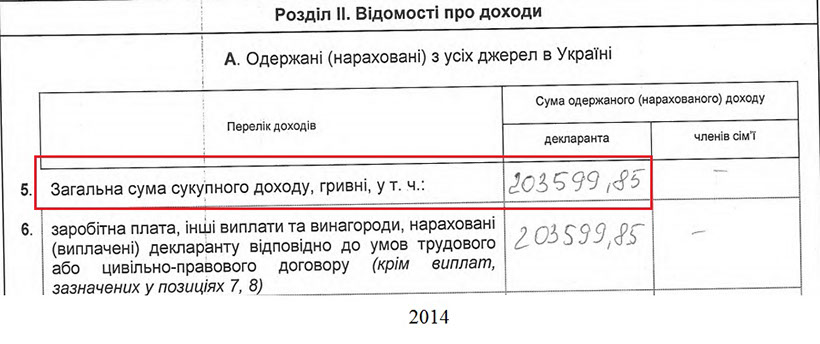 Розділ II. Відомості про доходи
А. Одержані (нараховані) з усіх джерел в Україні
Перелік доходів
Сума одержаного (нарахованого) доходу
декларанта
членів сім'ї
5. Загальна сума сукупного доходу, гривні, у т. ч.: 203599,85 –
6. заробітна плата, інші виплати та винагороди, нараховані 203599,85 –
(виплачені) декларанту відповідно до умов трудового
або цивільно-правового договору (крім виплат,
зазначених у позиціях 7, 8)
2014